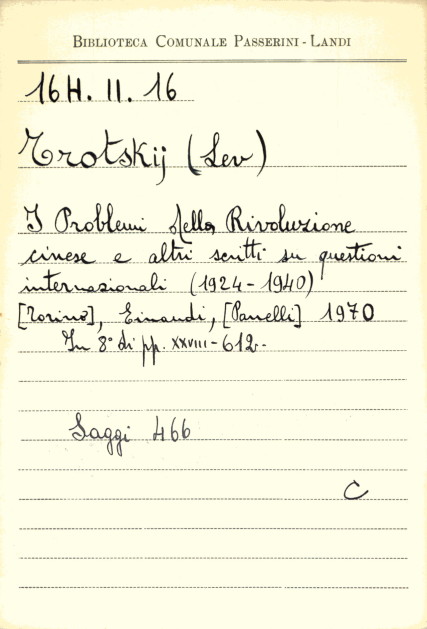 BIBLIOTECA COMUNALE PASSERINI - LANDI
16H. II. 16
Trotskij (Lev)
I Problemi della Rivoluzione
cinese e altri scritti su questioni
internazionali (1924-1940)
[Torino], Einaudi, [Panelli] 1970
In 8° di pp. XXVIII-612-
Saggi 466
C